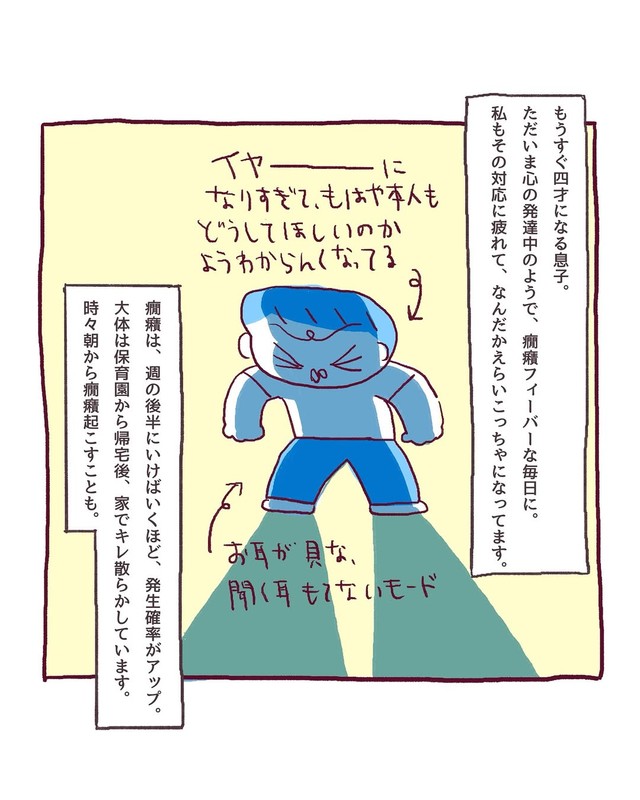 もうすぐ四才になる息子。
ただいま心の発達中のようで、癇癪フィーバーな毎日に。
私もその対応に疲れて、なんだかえらいこっちゃになってます。
イヤーーーに
なりすぎて、もはや本人も
どうしてほしいのか
ようわからんくなってる
癇癪は、週の後半にいけばいくほど、発生確率がアップ。
大体は保育園から帰宅後、家でキレ散らかしています。
時々朝から癇癪起こすことも。
お耳が貝な、
聞く耳もてないモード